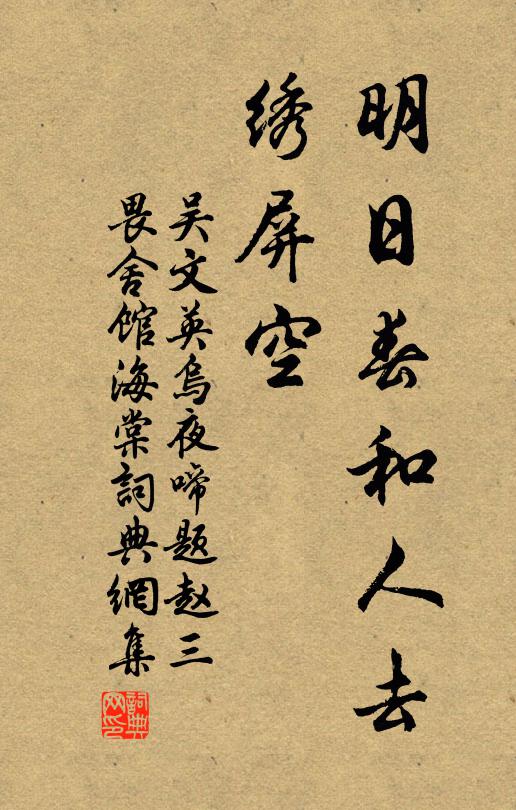 明日春和人去
绣屏空
吴文英烏夜啼题赵三
畏舍館海棠詞典網集
詞典网印